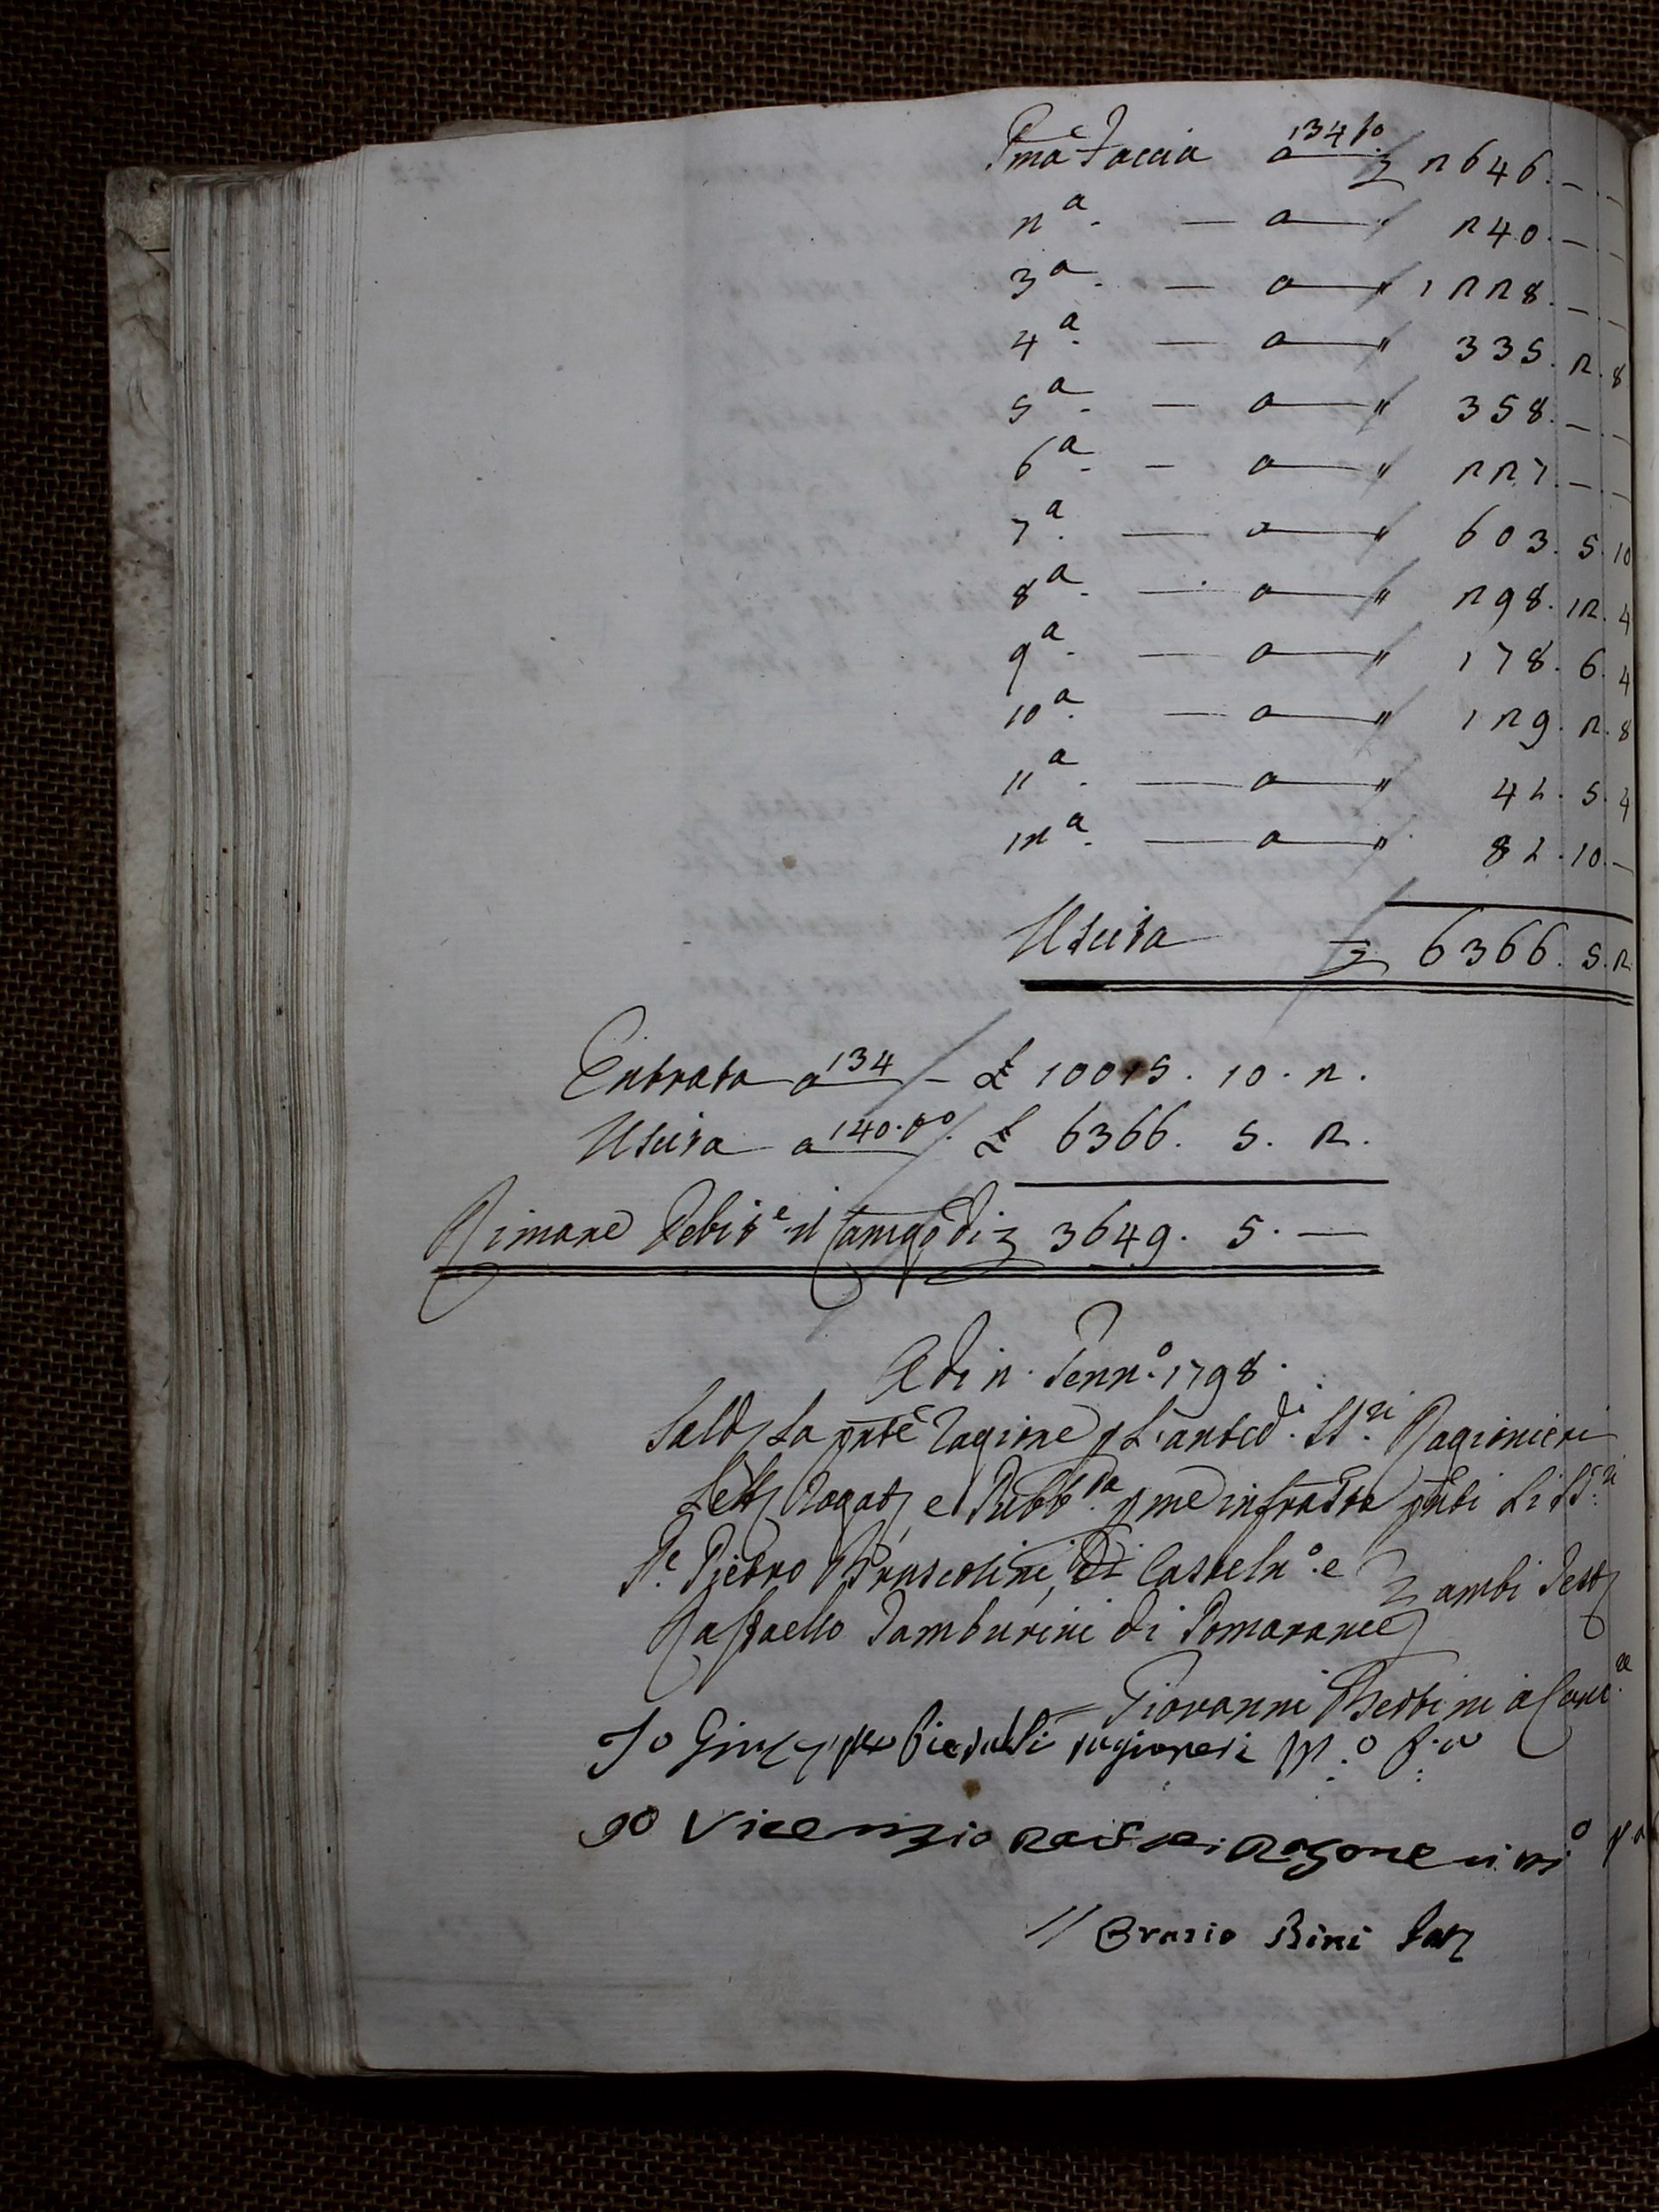 Pma Faccia a 134 to £ 2646. – –
2a. – a " 240. – –
3a. – a " 1228. – –
4a. – a " 335. 2. 8
5a. – a " 358. – –
6a. – a " 227. – –
7a. – a " 603. 5. 10
8a. – a " 298. 12. 4
9a. – a " 178. 6. 4
10a. – a " 129. 2. 8
11a. – a " 42. 5. 4
12a. – a " 82. 10. –
Uscita £ 6366. 5. 2
Entrata a 134 – £ 10015. 10. 2.
Uscita a 140. £ 6366. 5. 2.
Rimane Debite il Camgo di £ 3649. 5. –
Adi 2. Genno. 1798.
Saldo La pnte Ragione p L'antedi. SSri Ragionieri
Letto Rogato, e Pubbta. p me infratto pnti Li SSri
Pietro Bruscolini, di Casteln.o e
Raffaello Tamburini di Pomarance ambi Testj
Giovanni Bertini Canc.re
Io Giuseppe ragionieri M.o P.o
Io Vicenzio Ragonieri
// Orazio Bini